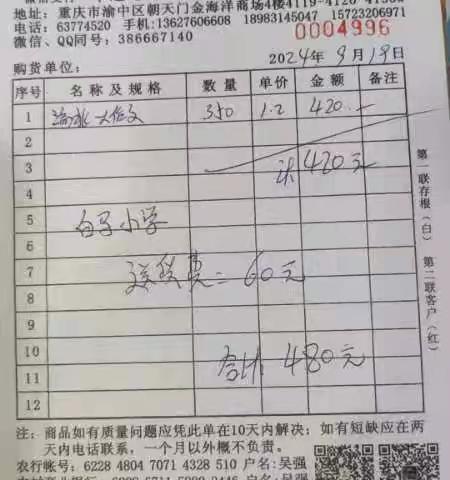 地址：重庆市渝中区朝天门金海洋商场4楼4119-4120
电话：63774520 手机：13627606608 18983145047 15723206971
微信、QQ同号：386667140
0004996
购货单位： 2024年9月19日
序号 名称及规格 数量 单价 金额 备注
1 大作文 350 1.2 420
2
3 计420元
4
5 小学
6
7 送货费=60元
8
9
10
11 合计480元
12
第一联存根（白） 第二联客户（红）
注：商品如有质量问题应凭此单在10天内解决；如有短缺应在两
天内电话联系，一个月以外概不负责。
农行帐号：6228 4804 7071 4328 510 户名:吴强